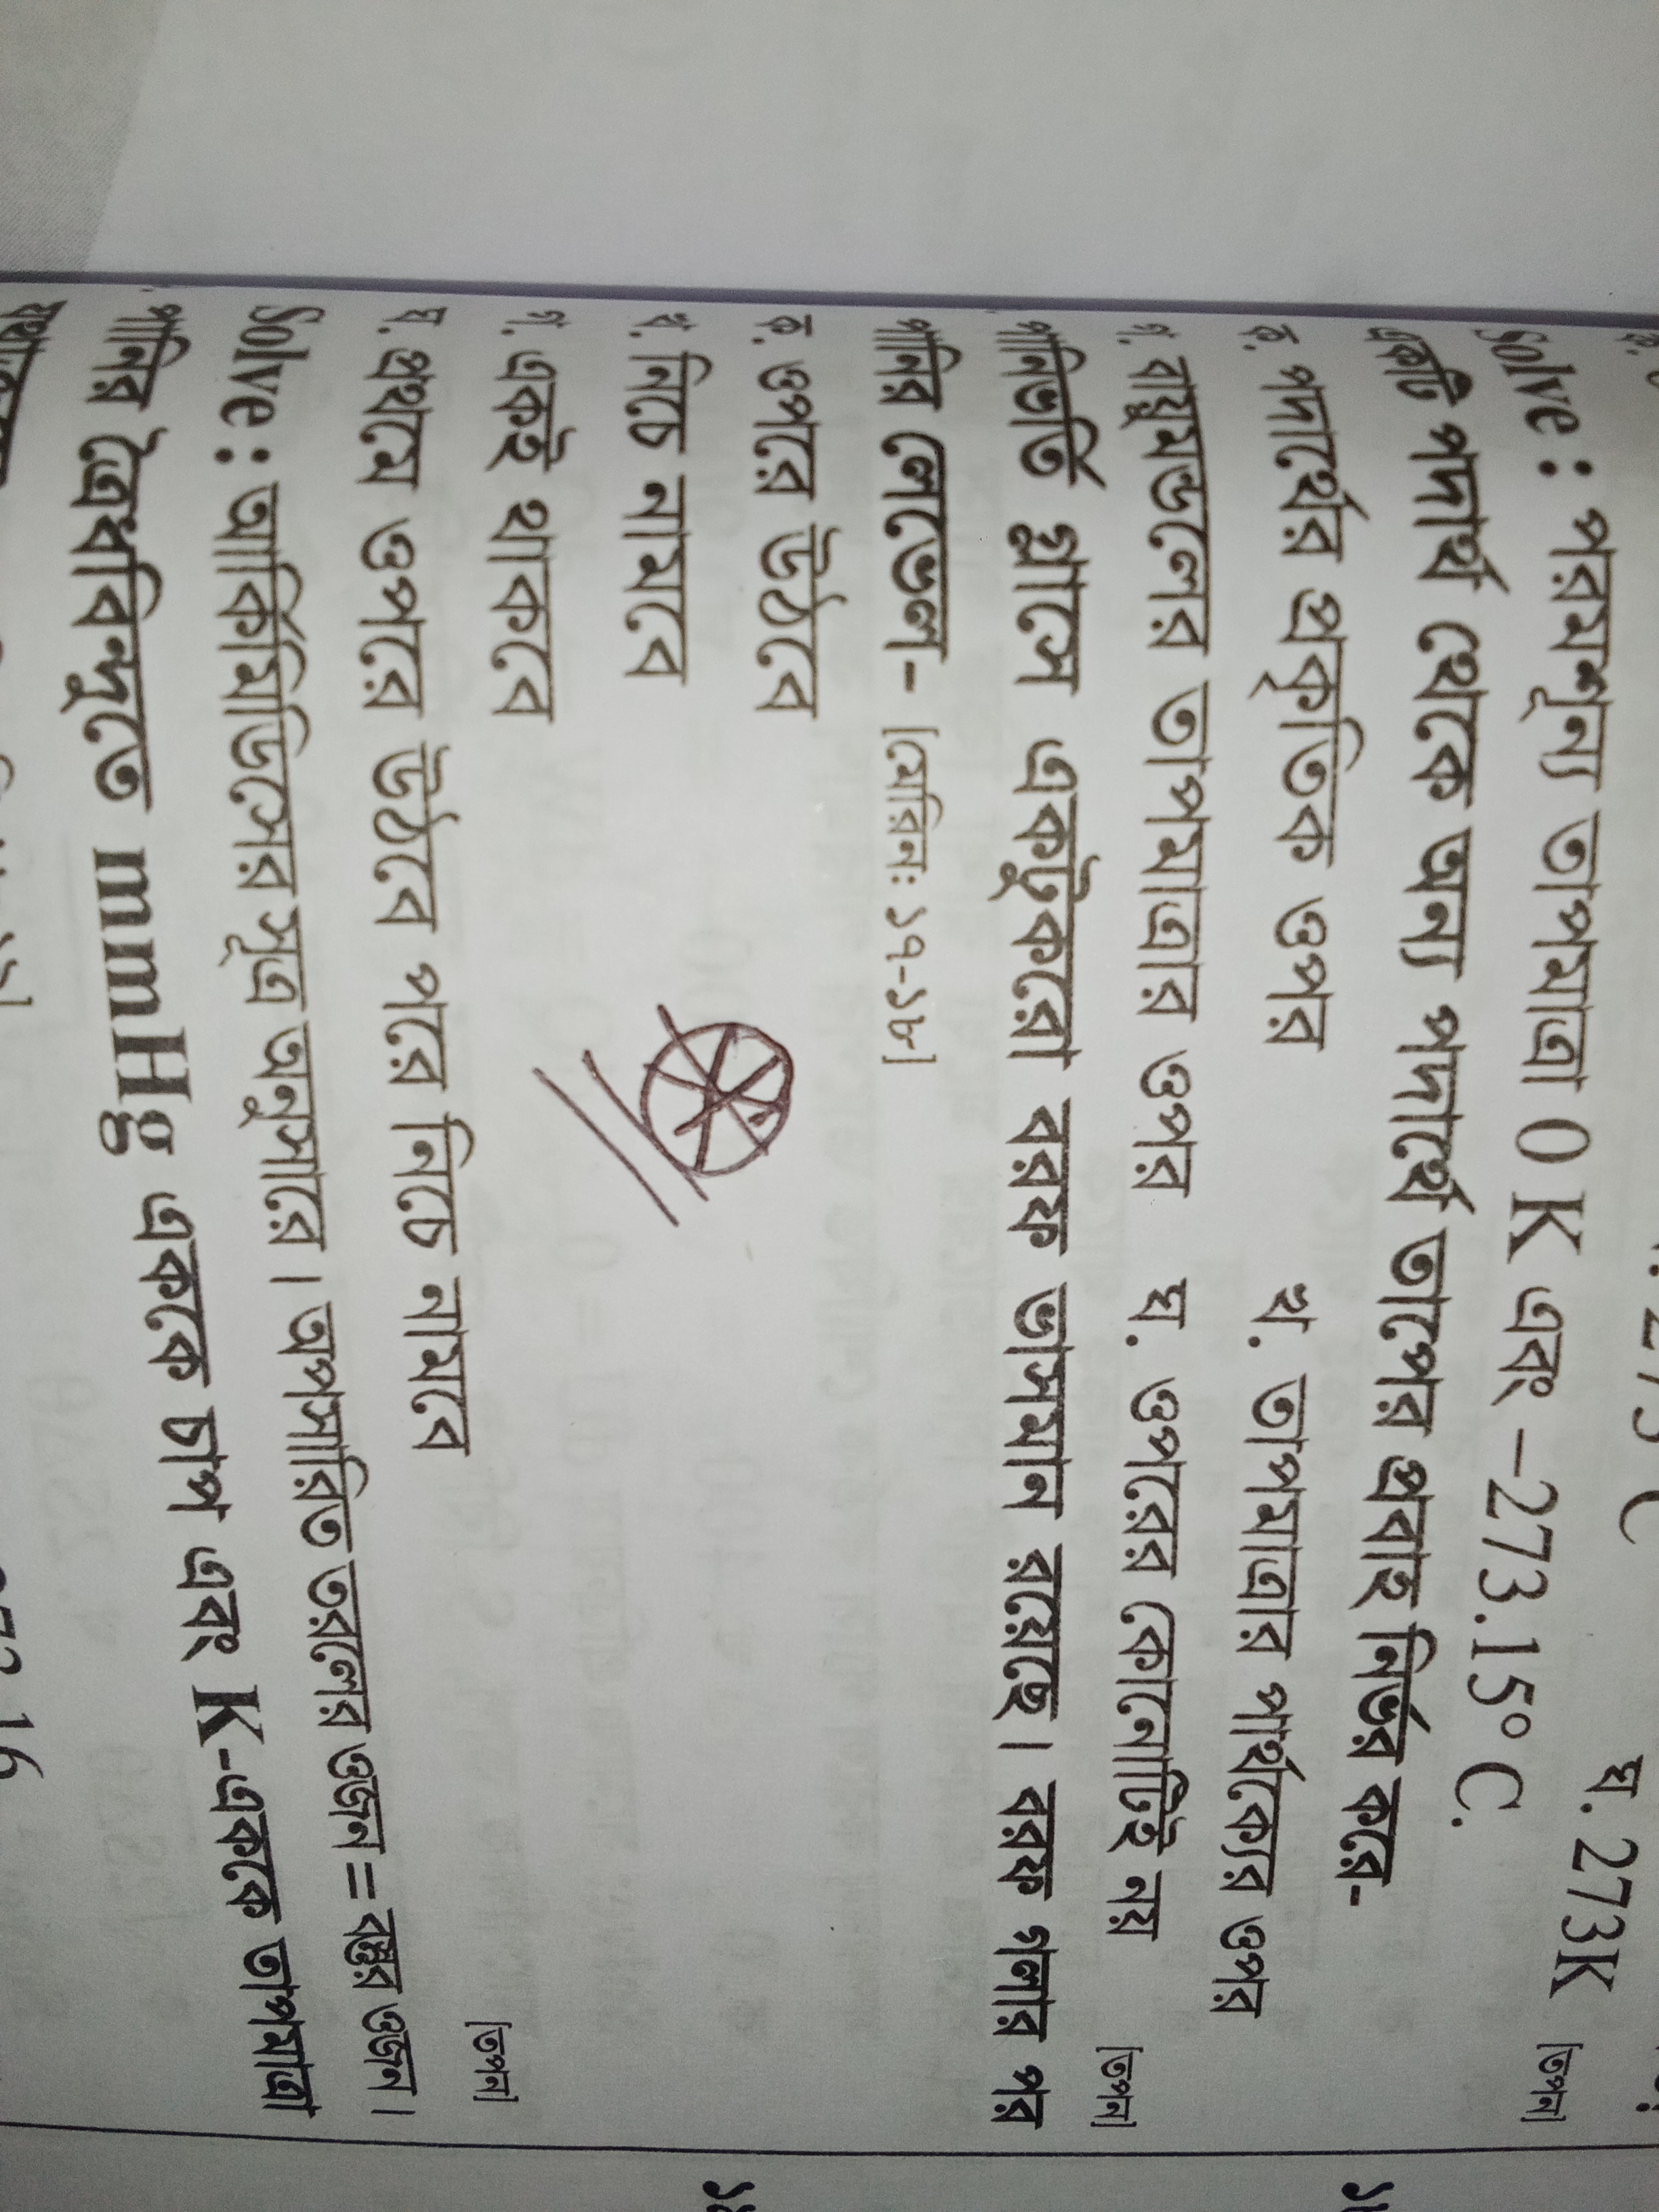 ঘ. 273K
Solve : পরমশূন্য তাপমাত্রা 0 K এবং –273.15° C. [তপন]
একটি পদার্থ থেকে অন্য পদার্থে তাপের প্রবাহ নির্ভর করে-
ক. পদার্থের প্রকৃতিক ওপর খ. তাপমাত্রার পার্থক্যের ওপর
গ. বায়ুমন্ডলের তাপমাত্রার ওপর ঘ. ওপরের কোনোটিই নয় [তপন]
পানিভর্তি গ্লাসে একটুকরো বরফ ভাসমান রয়েছে। বরফ গলার পর
পানির লেভেল- [মেরিন: ১৭-১৮]
ক. ওপরে উঠবে
খ. নিচে নামবে
গ. একই থাকবে
ঘ. প্রথমে ওপরে উঠবে পরে নিচে নামবে [তপন]
Solve : আর্কিমিডিসের সূত্র অনুসারে। অপসারিত তরলের ওজন = বস্তুর ওজন।
পানির ত্রৈধবিন্দুতে mmHg এককে চাপ এবং K-এককে তাপমাত্রা